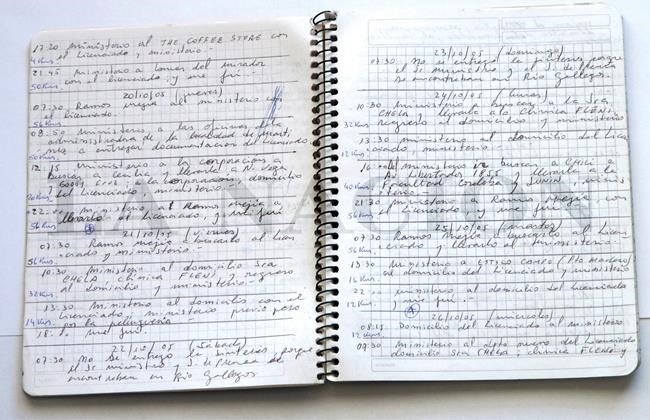 17:20 ministerio al THE COFFEE STORE con
el Licenciado, ministerio.-
4 Kms.
21:45 ministerio a Lomas del mirador
con el Licenciado y me fui.-
50 Kms.
20/10/05 (jueves)
07:30 Ramos mejia al ministerio con
el Licenciado.
56 Kms.
08:50 ministerio a las oficinas
administrativa de la localidad de
entregar documentacion del Licenciado
50 Kms.
12:15 ministerio a la corporacion a
buscar a llevarla a N. Vega
a la corporacion, domicilio
del Licenciado, ministerio.-
22:00 ministerio al Ramos mejia a
llevarlo al Licenciado, y me fui.-
56 Kms.
21/10/05 (viernes)
07:30 Ramos mejia a buscarlo al Licen
ciado y ministerio.-
56 Kms.
10:30 ministerio al domicilio Sra
CHELA clinica FLENI, y regreso
al domicilio y ministerio.-
32 Kms.
13:30 ministerio al domicilio con el
Licenciado, ministerio previo paso
por la peluqueria.-
14 Kms.
18: me fui.-
22/10/05 (Sabado)
07:30 No se entrego la sintesis porque
el Sr ministro y S. de Prensa se
encontraban en Rio Gallegos.
23/10/05 (domingo)
07:30 No se entrego la sintesis porque
el Sr ministro y el S. de Prensa
se encontraban en Rio Gallegos.
24/10/05 (lunes)
10:30 ministerio a buscar a la Sra
CHELA, llevarla a la Clinica FLENI,
regreso al domicilio y ministerio
32 Kms.
13:30 ministerio al domicilio del Licen
ciado, ministerio.-
12 Kms.
ministerio ir buscar a CHICI a
Av. Libertador 1855 y llevarla a la
Facultad Cordoba y JUNIN, minis
terio.-
40 Kms.
21:30 ministerio a Ramos mejia con
el Licenciado y me fui.-
56 Kms.
25/10/05 (martes)
07:30 Ramos mejia a buscarlo al Licen
ciado y llevarlo al ministerio.-
56 Kms.
13:30 ministerio a ESTILO CAMPO (Pto Madero)
al domicilio del Licenciado y ministerio
12 Kms.
22 ministerio al domicilio del Licenciado
y me fui.-
12 Kms.
26/10/05 (miercoles)
08:15 Domicilio del Licenciado al ministerio
12 Kms.
09:30 Ministerio al dpto nuevo del Licenciado
domicilio Sra CHELA, clinica FLENI y